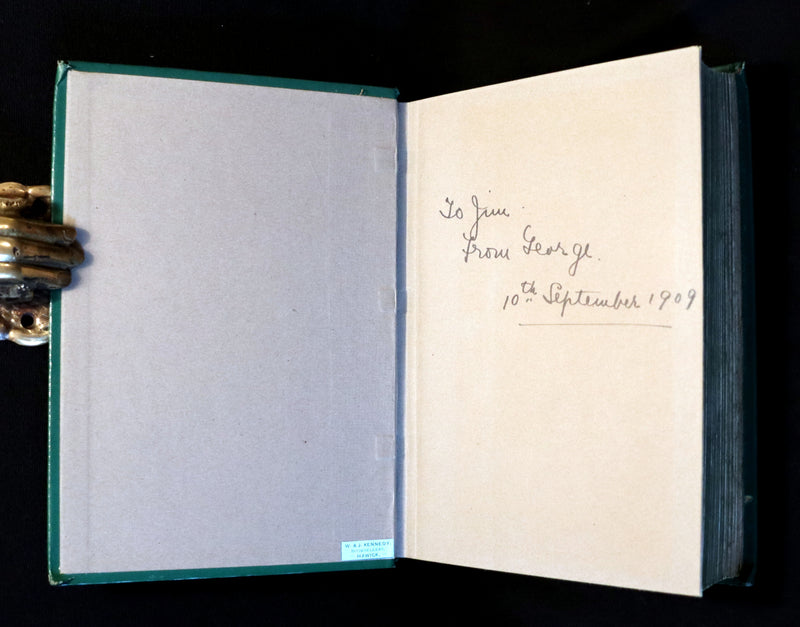 W. & J. KENNEDY,
HAWICK.
To Jim
From George.
10th September 1909